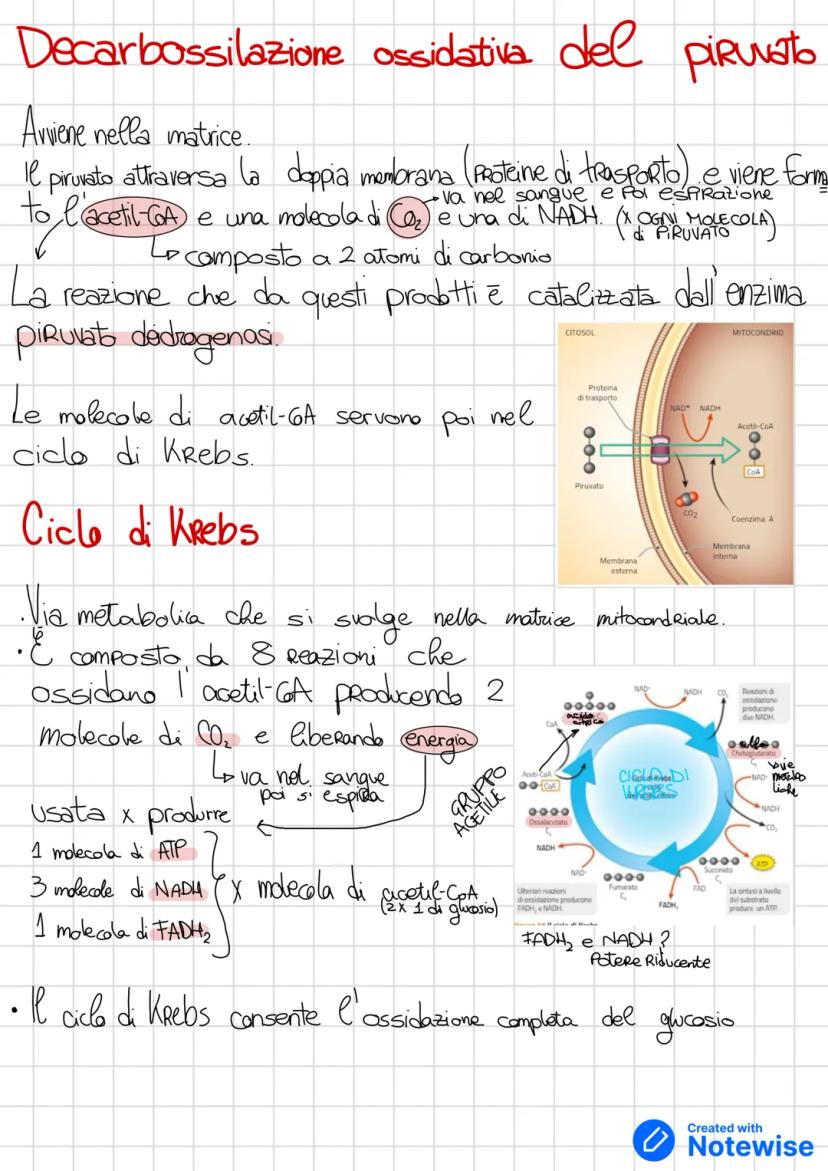 Decarbossilazione ossidativa del piruvato
Avviene nella matrice.
Il piruvato attraversa la doppia membrana (proteine di trasporto) e viene forma
va nel sangue e poi espirazione
to l'acetil-CoA e una molecola di CO₂ e una di NADH. (x OGNI MOLECOLA
di PIRUVATO)
composto a 2 atomi di carbonio
La reazione che da questi prodotti è catalizzata dall'enzima
piruvato deidrogenasi.
CITOSOL
MITOCONDRIO
Proteina
di trasporto
NAD⁺ NADH
Acetil-CoA
CoA
Piruvato
CO₂
Coenzima A
Membrana
interna
Membrana
esterna
Le molecole di acetil-CoA servono poi nel
ciclo di Krebs.
Ciclo di Krebs
. Via metabolica che si svolge nella matrice mitocondriale.
• È composto da 8 reazioni che
ossidano l'acetil-CoA producendo 2
molecole di CO₂ e liberando energia
va nel sangue
poi si espira
usata x produrre
1 molecola di ATP
3 molecole di NADH
1 molecola di FADH₂
x molecola di acetil-CoA
(2x 1 di glucosio)
GRUPPO
ACETILE
NAD⁺
NADH
CO₂
Reazioni di
ossidazione
producono
due NADH.
acido
CoA
Acetil-CoA
CoA
CICLO DI
KREBS
alfa
Chetoglutarato
C₅
vie
NAD⁺
NADH
CO₂
Ossalacetato
C₄
NADH
NAD⁺
Fumarato
C₄
FADH₂
FAD
Succinato
C₄
ATP
Ulteriori reazioni
di ossidazione producono
FADH₂ e NADH.
La sintesi a livello
del substrato
produce un ATP.
FADH₂ e NADH?
Potere riducente
• Il ciclo di Krebs consente l'ossidazione completa del glucosio
Created with
Notewise